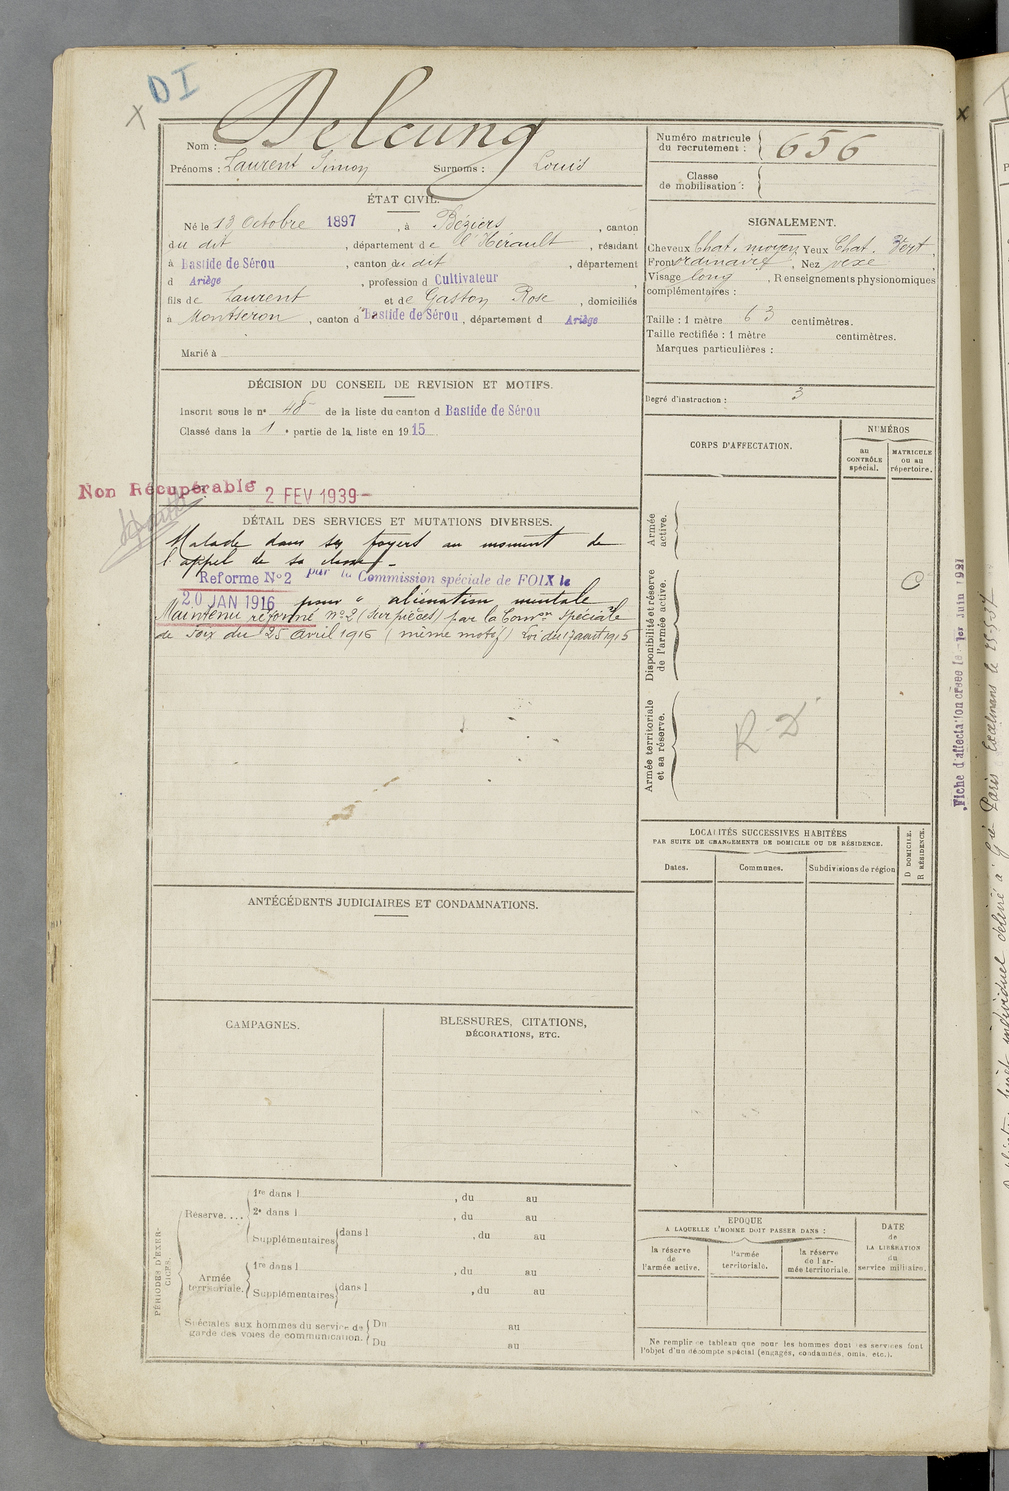 DI
Nom : Delcung
Prénoms : Laurent Simon Surnoms : Louis
Numéro matricule du recrutement : 656
Classe de mobilisation :
ÉTAT CIVIL.
Né le 13 Octobre 1897, à Béziers, canton
du dit, département de l'Hérault, résidant
à Bastide de Sérou, canton du dit, département
d Ariège, profession d Cultivateur,
fils de Laurent et de Gaston Rose, domiciliés
à Montseron, canton d Bastide de Sérou, département d Ariège
Marié à
SIGNALEMENT.
Cheveux Chat. moyen Yeux Chat. Vert,
Front ordinaire, Nez vexe,
Visage long, Renseignements physionomiques
complémentaires :
Taille : 1 mètre 63 centimètres.
Taille rectifiée : 1 mètre centimètres.
Marques particulières :
Degré d'instruction : 3
DÉCISION DU CONSEIL DE REVISION ET MOTIFS.
Inscrit sous le n° 48 de la liste du canton d Bastide de Sérou
Classé dans la 1e partie de la liste en 1915
Non Récupérable 2 FEV 1939
DÉTAIL DES SERVICES ET MUTATIONS DIVERSES.
Malade dans ses foyers au moment de
l'appel de sa classe.
Reforme N°2 par la Commission spéciale de FOIX le
20 JAN 1916 pour " aliénation mentale
Maintenu réformé n°2 (sur pièces) par la Comon Spéciale
de Foix du 25 avril 1916 (même motif) Loi du 17 aout 1915
CORPS D'AFFECTATION.
NUMÉROS
au CONTRÔLE spécial.
MATRICULE ou au répertoire.
Armée active.
Disponibilité et réserve de l'armée active.
C
Armée territoriale et sa réserve.
R-D
LOCALITÉS SUCCESSIVES HABITÉES
PAR SUITE DE CHANGEMENTS DE DOMICILE OU DE RÉSIDENCE.
Dates.
Communes.
Subdivisions de région
D DOMICILE.
R RÉSIDENCE.
ANTÉCÉDENTS JUDICIAIRES ET CONDAMNATIONS.
CAMPAGNES.
BLESSURES, CITATIONS,
DÉCORATIONS, ETC.
PÉRIODES D'EXERCICES.
Réserve....
1re dans l , du au
2e dans l , du au
Supplémentaires dans l , du au
Armée territoriale.
1re dans l , du au
Supplémentaires dans l , du au
Spéciales aux hommes du service de
garde des voies de communication.
Du au
Du au
EPOQUE
A LAQUELLE L'HOMME DOIT PASSER DANS :
la réserve de l'armée active.
l'armée territoriale.
la réserve de l'armée territoriale.
DATE
de
LA LIBÉRATION
du
service militaire.
Ne remplir ce tableau que pour les hommes dont les services font
l'objet d'un décompte spécial (engagés, condamnés, omis, etc.).
Fiche d'affectation créée le 1er Juin 1931